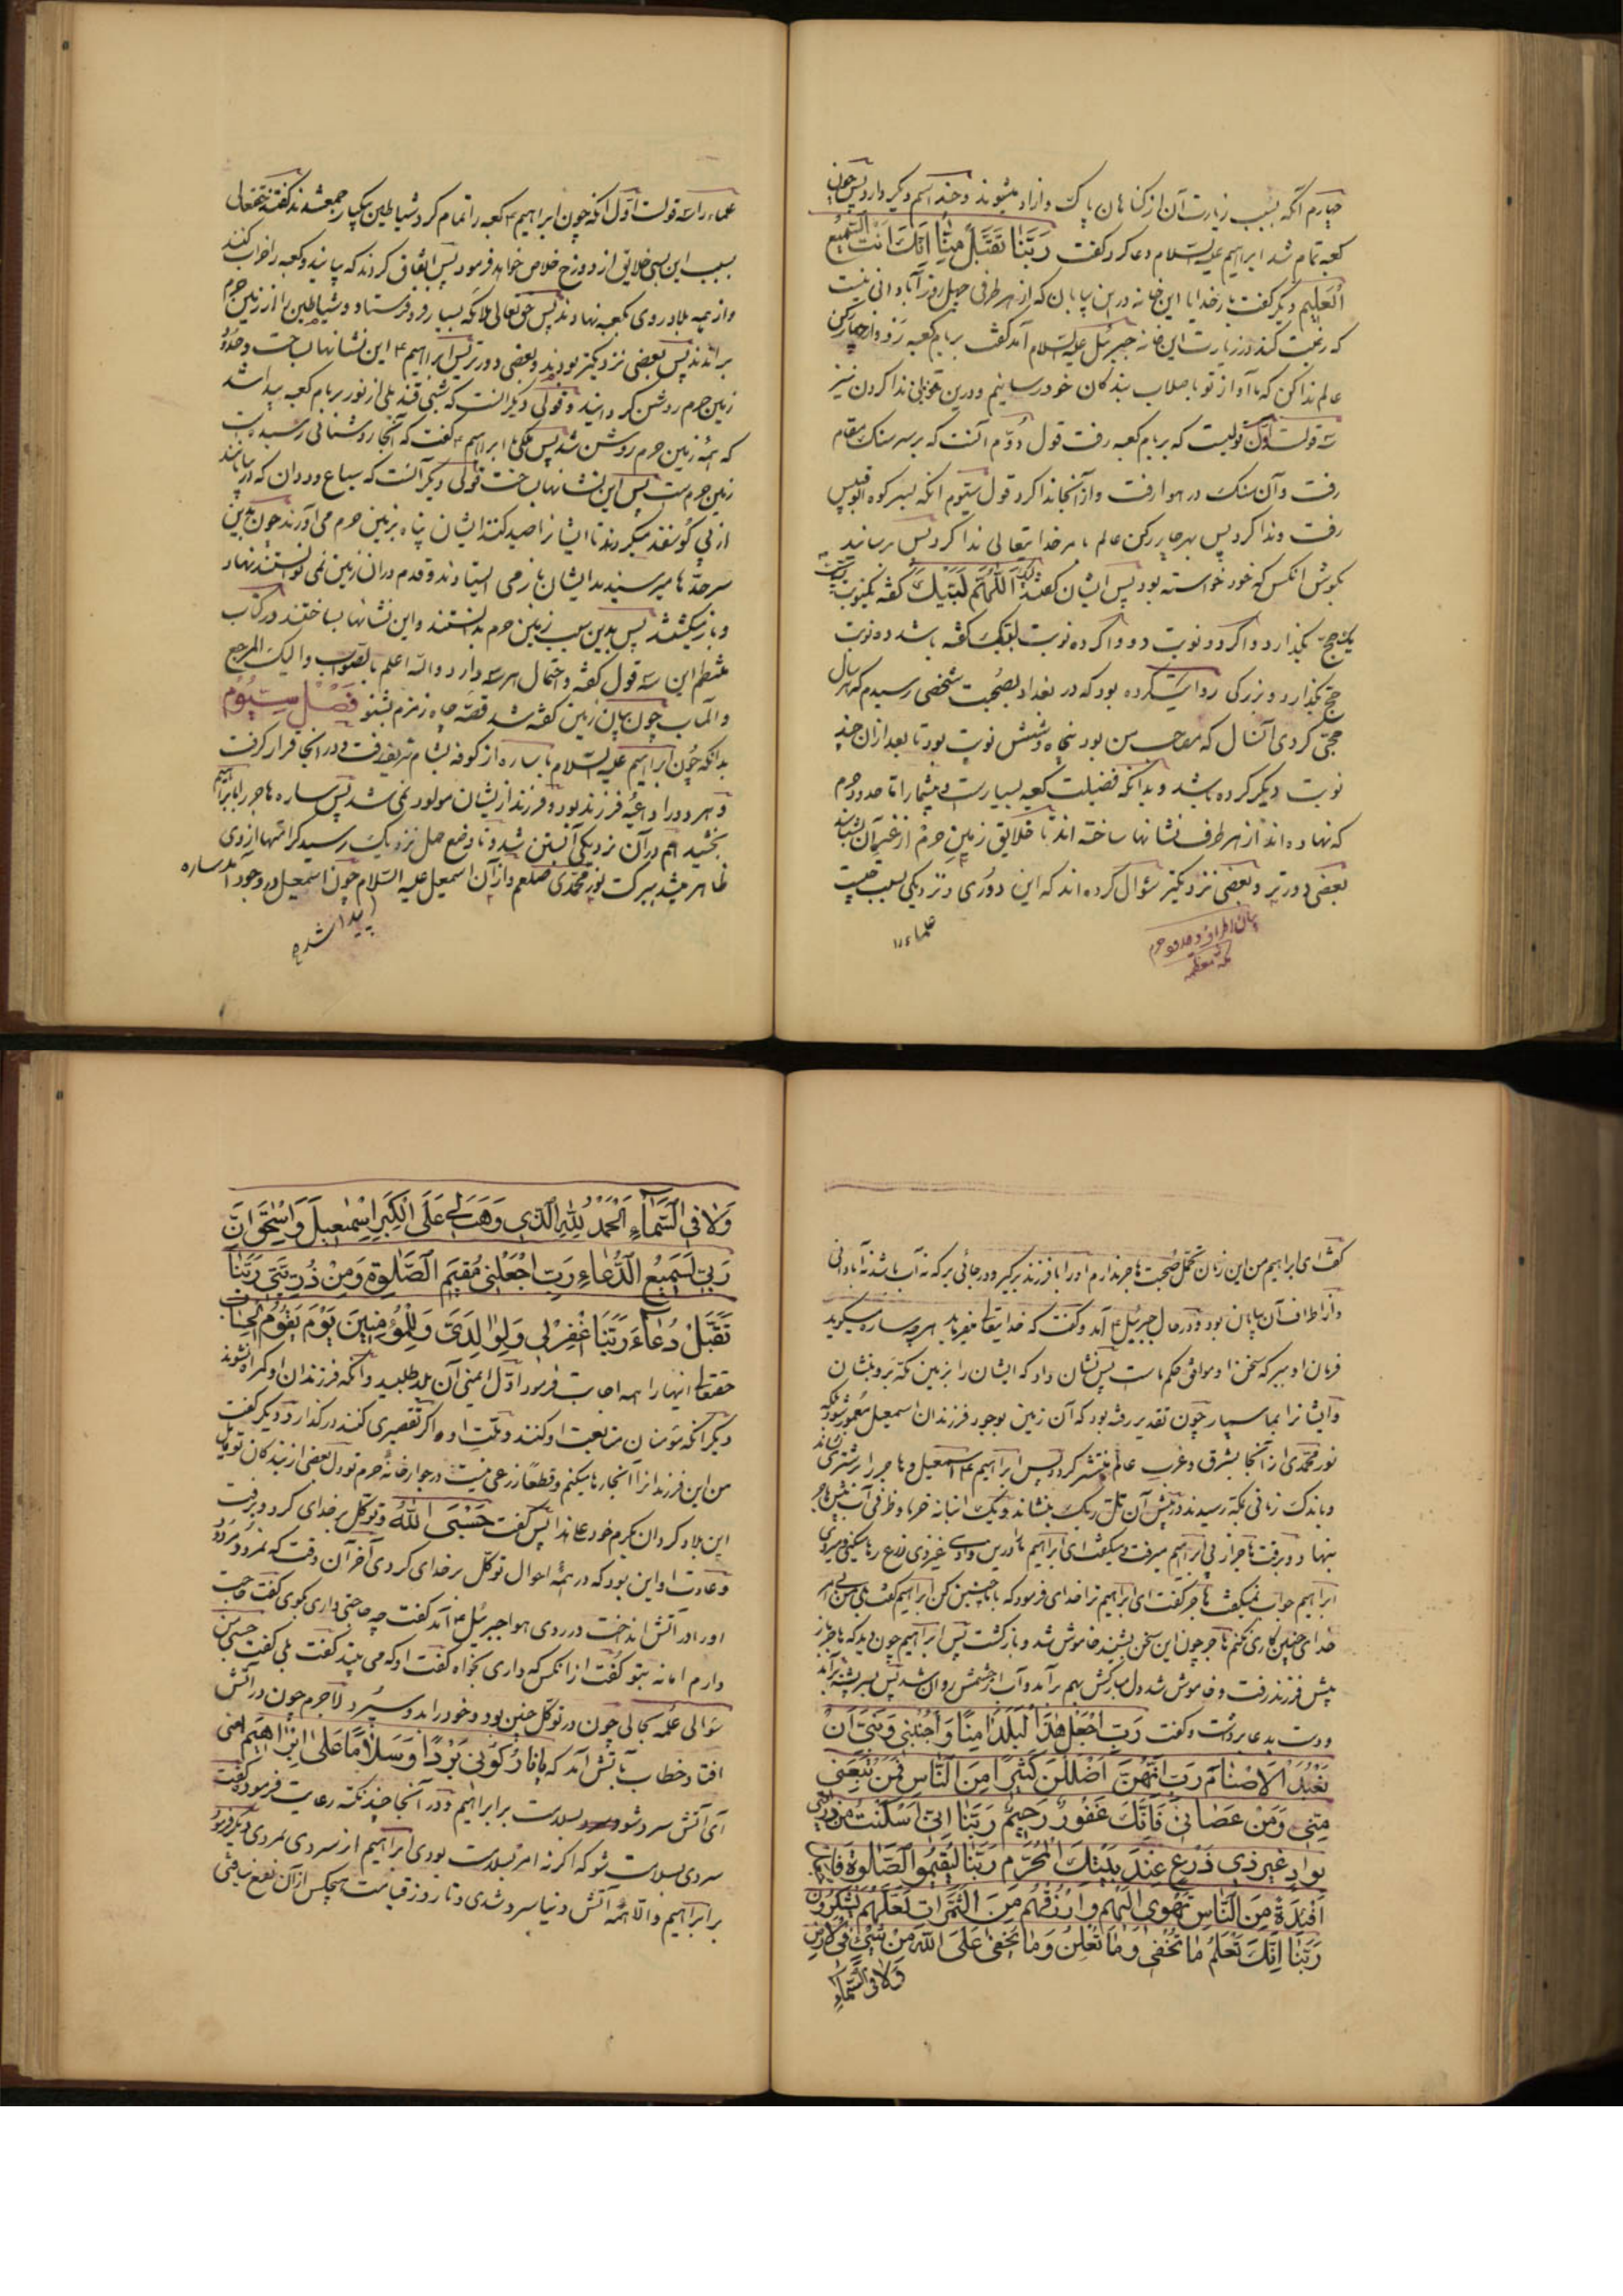 چهارم آنکه بسبب زیارت آن از کناهان پاک و ازاد میشوند و چند اسم دیکر دارد پس چون
کعبه تمام شد ابراهیم علیه السلام دعا کرد و کفت رَبَّنٰا تَقَبَّلْ مِنّٰا اِنَّكَ اَنْتَ السَّمیٖعُ
الْعَلیٖم و دیکر کفت بارخدایا این خانه درین بیابان که از هر طرفی چهل روز آبادانی نیست
که رغبت کند در زیارت این خانه جبرئیل علیه السلام آمد کفت بر بام کعبه رو و از چهار رکن
عالم ندا کن که ما آواز تو باصلاب بندکان خود رسانیم و درین ندا کردن نیز
سه قولست اوّل قولیست که بر بام کعبه رفت قول دُوّم آنست که بر سر سنک مقام
رفت و آن سنک در هوا رفت و از آنجا ندا کرد قول سیّوم انکه بسر کوه ابوقبیس
رفت و ندا کرد پس بهر چهار رکن عالم بامر خدایتعالی ندا کرد پس برسانید
بکوش انکس که خود خواسته بود پس ایشان کفتند اَللّٰهُمَّ لَبَّیْكَ کفته یکنوبت
یک حجّ بکذارد و اکر دو نوبت دو و اکر ده نوبت لبّیک کفته باشد ده نوبت
حجّ بکذارد و بزرکی روایت کرده بود که در بغداد بصُحبت شخصی رسیدم که هر سال
حجّی کردی آنسال که مصاحب من بود پنجاه و شش نوبت بود تا بعد ازان چند
نوبت دیکر کرده باشد و بدانکه فضیلت کعبه بسیارست و بیشمار امّا حدود حرم
که نهاده اند از هر طرف نشانها ساخته اند تا خلایق زمین حرم از غیر آن بشناسند
بعضی دورتر و بعضی نزدیکتر سُوال کرده اند که این دُوری و نزدیکی بسبب چیست
علماء را
بیان اطراف و حدود حرم
مکه معظمه
علماء را سه قولست اوّل آنکه چون ابراهیم ۴ کعبه را تمام کرد شیاطین بیکبار جمع شدند کفتند حقتعالی
بسبب این بسی خلایق از دوزخ خلاص خواهد فرمود پس اتّفاق کردند که بیایند و کعبه را خراب کنند
و از همه بلاد روی بکعبه نهادند پس حق تعالی ملائکه بسیار فرو فرستاد و شیاطین را از زمین حرم
براندند پس بعضی نزدیکتر بودند و بعضی دورتر پس ابراهیم ۴ این نشانها بساخت و حدود
زمین حرم روشن کردانید و قولی دیکر انست که شبی قندیلی از نور بر بام کعبه پیدا شد
که همهٔ زمین حرم روشن شد پس ملکی با ابراهیم ۴ کفت که تا آنجا روشنائی رسیدست
زمین حرمست پس این نشانها ساخت قولی دیکر آنست که سباع و ددان که در بیابانند
از پی کوسفند میکردند تا ایشانرا صید کنند ایشان پناه بزمین حرم می آوردند چون بدین
سرحدّها میرسیدند ایشان باز می ایستادند و قدم دران زمین نمی توانستند نهاد
و باز میکشتند پس بدین سبب زمین حرم بدانستند و این نشانها بساختند در کتاب
این سه قول کفته و احتمال هر سه دارد والله اعلم بالصّواب و الیک المرجع
والمآب چون بیان زمین کفته شد قصّهٔ چاه زمزم بشنو فَصْل سِیُّوم
بدانکه چُون ابراهیم علیه السّلام با ساره از کوفه بشام شریف رفت و در انجا قرار کرفت
و هر دو را داعیهٔ فرزند بود و فرزند از یشان مولود نمی شد پس ساره هاجر را بابراهیم
بخشید هم در آن نزدیکی آبستن شد و تا وضع حمل نزدیک رسید کرامتها از وی
ظاهر میشد ببرکت نور محمّدی صلعم و از آن اسمعیل علیه السّلام چون اسمعیل در وجود آمد ساره
را پیدا شد
کفت ای ابراهیم من این زمان تحمّل صُحبت هاجر ندارم او را با فرزند برکیر و در جائی بر که نه آب باشد نه آبادانی
و از اطراف آن بیابان بود در حال جبرئیل ۴ آمد و کفت که خدایتعالی میفرماید هرچه ساره میکوید
فرمان او ببر که سخن او موافق حکم ماست پس نشان داد که ایشان را بزمین مکّه بر و بنشان
و ایشانرا بما سپار چون تقدیر رفته بود که آن زمین بوجود فرزندان اسمعیل معمور شود و تا
نور محمّدی از آنجا بشرق و غرب عالم منتشر کردد پس ابراهیم ۴ اسمعیل و هاجر را بر شتری نشاند
و باندک زمانی بمکّه رسیدند در پیش آن تلّ ریک بنشاند و یک انبانه خرما و ظرفی آب پیش هاجر
بنهاد و برفت هاجر از پی ابراهیم میرفت و میکفت ای ابراهیم ما را درین وادی غیر ذی زرع رها میکنی و میروی
ابراهیم جواب نمیکفت هاجر کفت ای ابراهیم ترا خدای فرمود که با ما چنین کن ابراهیم کفت بلی من بی امر
خدای چنین کاری نکنم هاجر چون این سخن بشنید خاموش شد و بازکشت پس ابراهیم چون دید که هاجر باز
پیش فرزند رفت و خاموش شد دل مبارکش بهم برآمد و آب از چشمش روان شد پس بسر پشته برآمد
و دست بدعا برداشت و کفت رَبِّ اجْعَلْ هٰذَا الْبَلَدَ اٰمِنًا وَاجْنُبْنٖی وَبَنِیَّ اَنْ
نَعْبُدَ الْاَصْنٰامَ رَبِّ اِنَّهُنَّ اَضْلَلْنَ کَثیٖرًا مِنَ النّٰاسِ فَمَنْ تَبِعَنٖی
مِنّٖی وَمَنْ عَصٰانٖی فَاِنَّكَ غَفُورٌ رَحیٖمٌ رَبَّنٰا اِنّٖی اَسْکَنْتُ مِنْ ذُرِّیَّتٖی
بِوادٍ غَیْرِ ذٖی زَرْعٍ عِنْدَ بَیْتِكَ الْمُحَرَّمِ رَبَّنٰا لِیُقیٖمُوا الصَّلٰوةَ فَاجْعَلْ
اَفْئِدَةً مِنَ النّٰاسِ تَهْوٖی اِلَیْهِمْ وَارْزُقْهُمْ مِنَ الثَّمَرٰاتِ لَعَلَّهُمْ یَشْکُرُونَ
رَبَّنٰا اِنَّكَ تَعْلَمُ مٰا نُخْفٖی وَمٰا نُعْلِنُ وَمٰا یَخْفٰی عَلَی اللّٰهِ مِنْ شَیْءٍ فِی الْاَرْضِ
وَلٰا فِی السَّمٰاءِ
وَلٰا فِی السَّمٰاءِ اَلْحَمْدُ لِلّٰهِ الَّذٖی وَهَبَ لٖی عَلَی الْکِبَرِ اِسْمٰعیٖلَ وَاِسْحٰقَ اِنَّ
رَبّٖی لَسَمیٖعُ الدُّعٰاءِ رَبِّ اجْعَلْنٖی مُقیٖمَ الصَّلٰوةِ وَمِنْ ذُرِّیَّتٖی رَبَّنٰا
تَقَبَّلْ دُعٰاءِ رَبَّنَا اغْفِرْلٖی وَلِوٰالِدَیَّ وَلِلْمُؤْمِنیٖنَ یَوْمَ یَقُومُ الْحِسٰابُ
حقتعالی اینها را همه اجابت فرمود اوّل ایمنی آن بلد طلبید و آنکه فرزندان او کمراه نشوند
دیکر آنکه مؤمنان متابعت او کنند و ملّت او و اکر تقصیری کنند درکذارد و دیکر کفت
من این فرزندانرا اینجا رها میکنم و قطعًا زرعی نیست در جوار خانهٔ حرم تو دل بعضی از بندکان تو مایل
این بلاد کردان بکرم خود خداوندا پس کفت حَسْبِیَ اللّٰهُ و توکّل بر خدای کرد و برفت
و عادت او این بود که در همهٔ احوال توکّل بر خدای کردی آخر آن وقت که نمرود مردود
او را در آتش انداخت در روی هوا جبرئیل ۴ آمد کفت چه حاجتی داری بکوی کفت حاجت
دارم امّا نه بتو کفت از انکس که داری بخواه کفت او که می بیند کفت بلی کفت حسبی من
سُؤالی علمه بحالی چون در توکّل چنین بود و خود را بدو سپرد لاجرم چون در آتش
افتاد خطاب بآتش آمد که یٰا نٰارُ کُونٖی بَرْدًا وَسَلٰامًا عَلٰی اِبْرٰاهیٖمَ یعنی
ای آتش سرد شو و بسلامت بر ابراهیم و در آنجا چند نکته رعایت فرمود کفت
سردی بسلامت شو که اکر نه امر بسلامت بودی ابراهیم از سردی بمردی دیکر فرمود
بر ابراهیم و الّا همهٔ آتش دنیا سرد شدی و تا روز قیامت هیچکس از آن نفع نیافتی